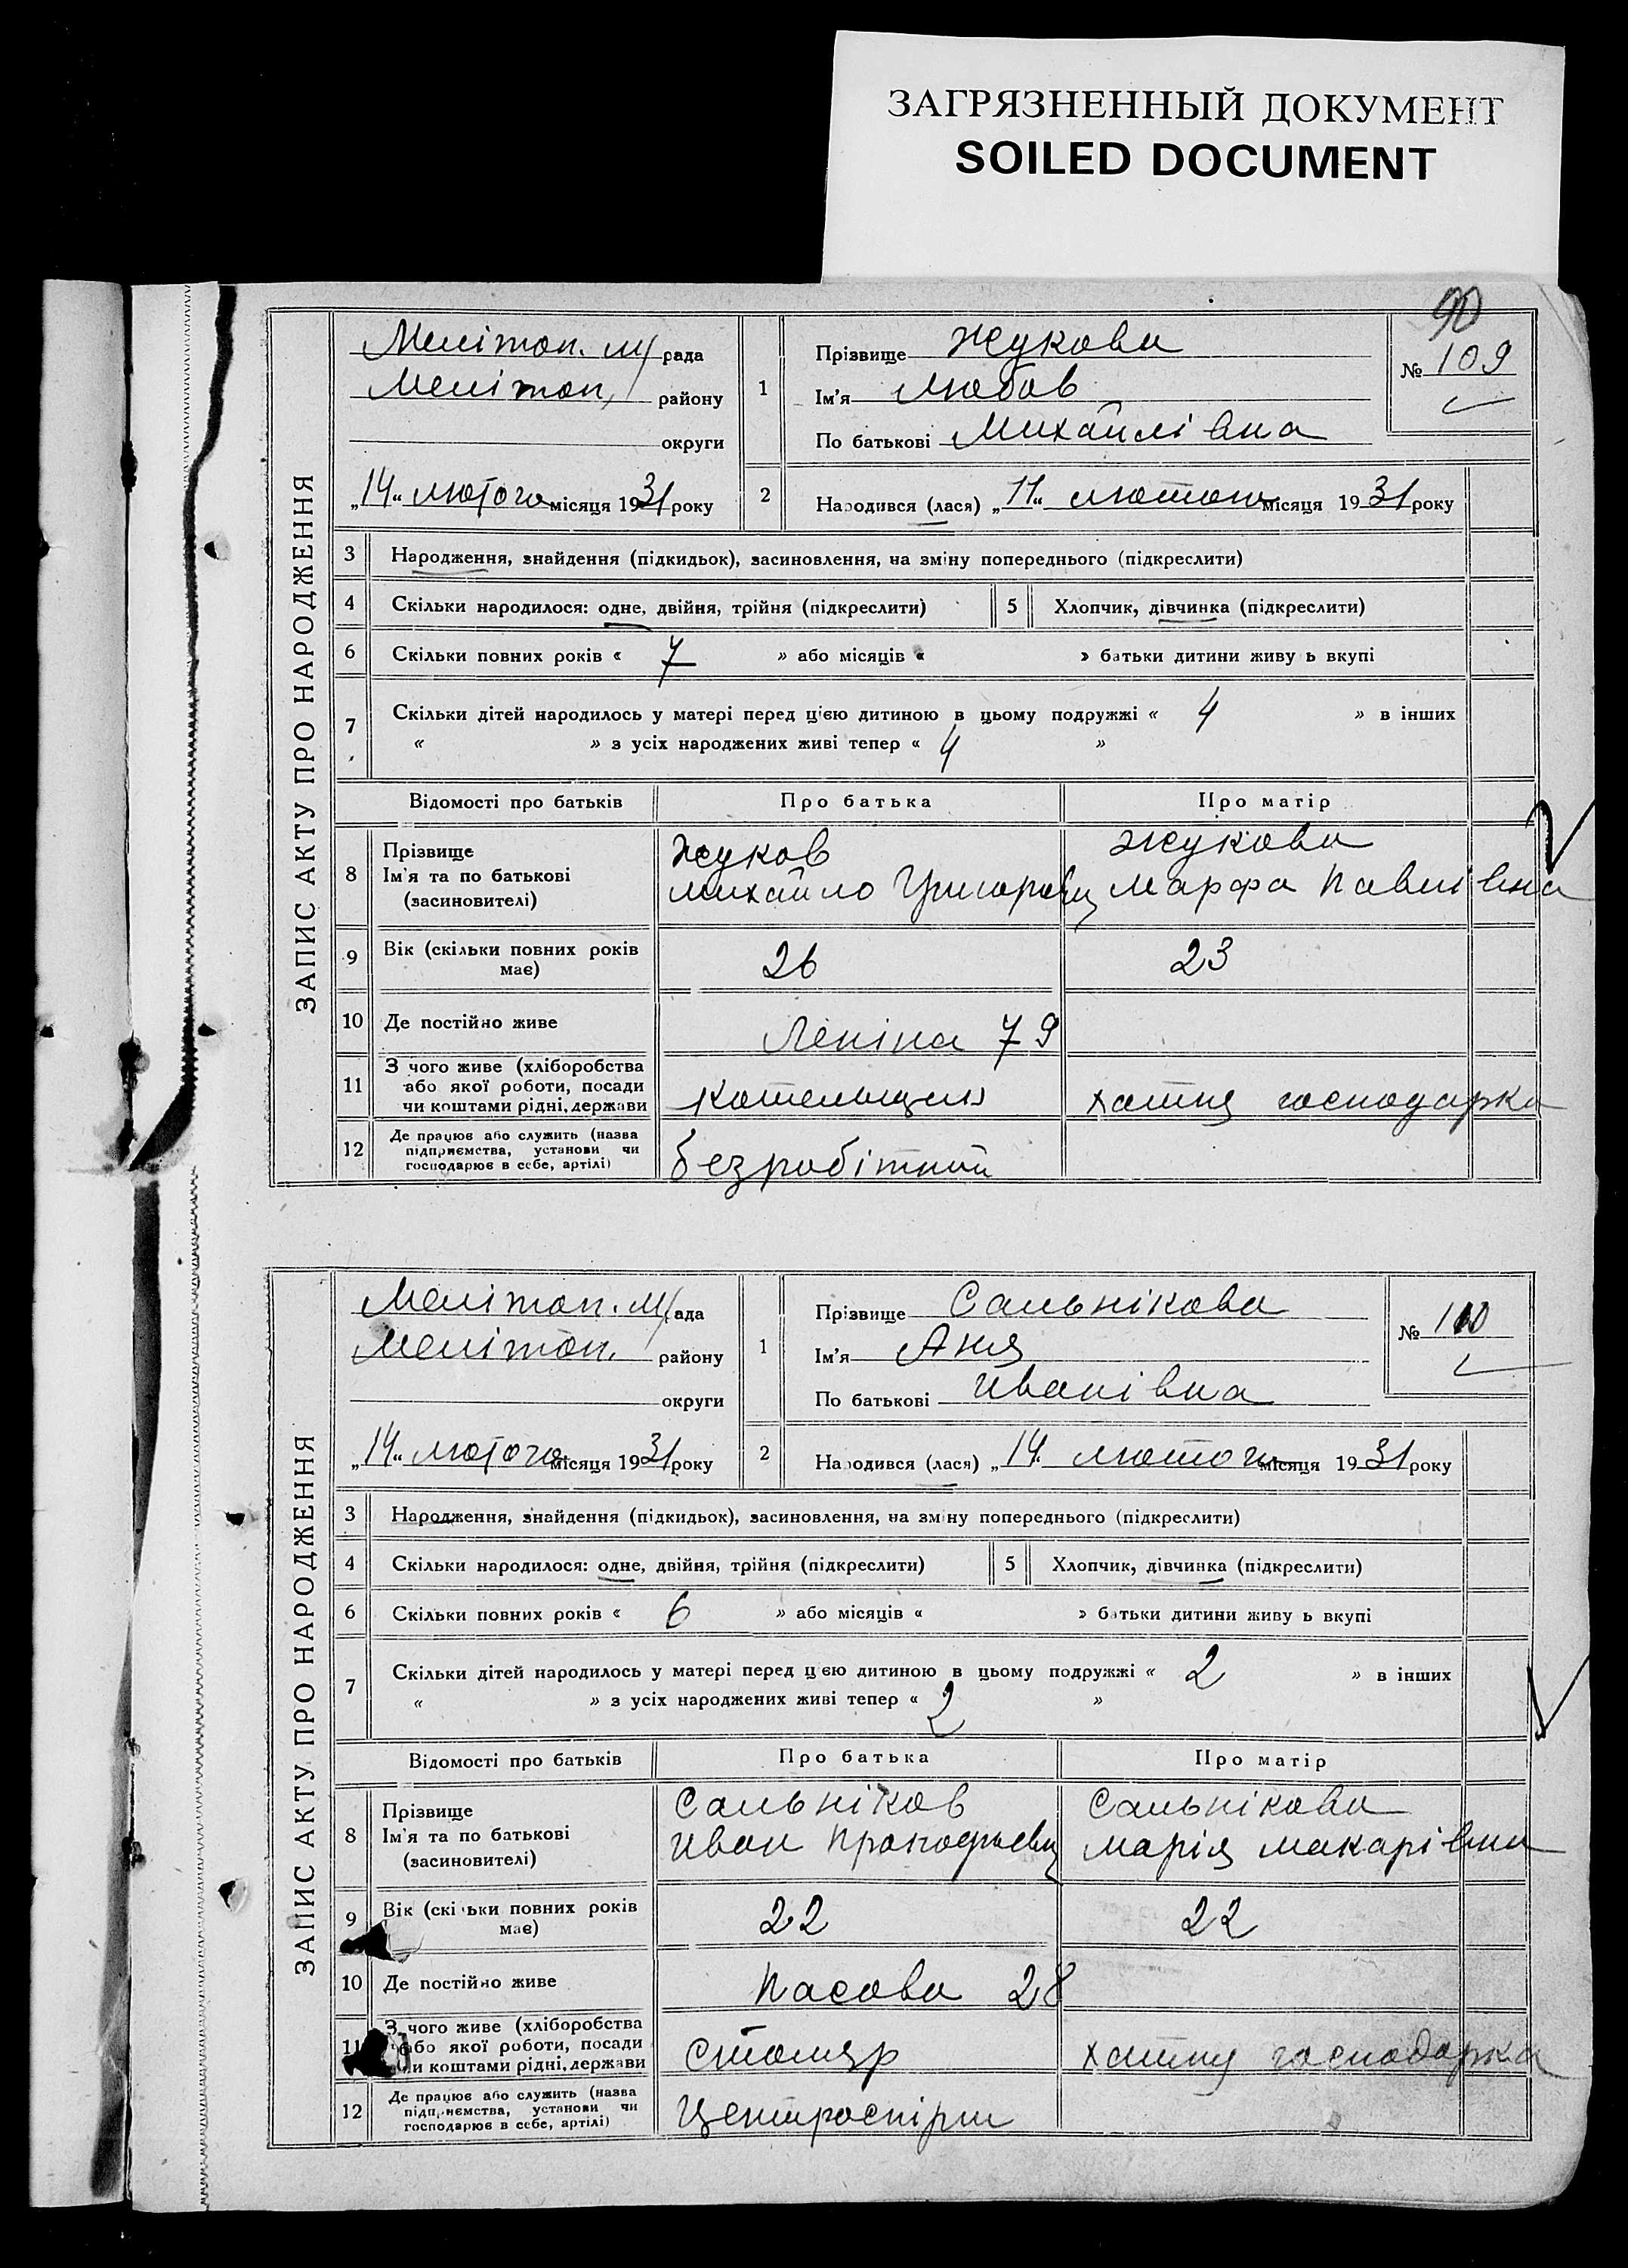 ЗАГРЯЗНЕННЫЙ ДОКУМЕНТ
SOILED DOCUMENT
90
ЗАПИС АКТУ ПРО НАРОДЖЕННЯ
Меліроп. м/рада
Меліtop. району
округи
„14“ лютого місяця 1931 року
1
Прізвище Жукова
Ім'я Любов
По батькові Михайлівна
№ 109
2
Народився (лася) „11“ лютого місяця 1931 року
3 Народження, знайдення (підкидьок), засиновлення, на зміну попереднього (підкреслити)
4 Скільки народилося: одне, двійня, трійня (підкреслити) 5 Хлопчик, дівчинка (підкреслити)
6 Скільки повних років « 7 » або місяців « » батьки дитини живу ь вкупі
7 Скільки дітей народилось у матері перед цією дитиною в цьому подружжі « 4 » в інших
« » з усіх народжених живі тепер « 4 »
Відомості про батьків Про батька Про матір
8 Прізвище Жуков Жукова
Ім'я та по батькові Михайло Григоровиц Марфа Павлівна
(засиновителі)
9 Вік (скільки повних років має) 26 23
10 Де постійно живе Леніна 79
11 З чого живе (хліборобства або якої роботи, посади чи коштами рідні, держави Котельщик хатня господарка
12 Де працює або служить (назва підприємства, установи чи господарює в себе, артілі) безробітний
ЗАПИС АКТУ ПРО НАРОДЖЕННЯ
Мелітоп. м/рада
Мелітоп. району
округи
„14“ лютого місяця 1931 року
1
Прізвище Сальнікова
Ім'я Аня
По батькові Иванівна
№ 110
2
Народився (лася) „14 лютого місяця 1931 року
3 Народження, знайдення (підкидьок), засиновлення, на зміну попереднього (підкреслити)
4 Скільки народилося: одне, двійня, трійня (підкреслити) 5 Хлопчик, дівчинка (підкреслити)
6 Скільки повних років « 6 » або місяців « » батьки дитини живу ь вкупі
7 Скільки дітей народилось у матері перед цією дитиною в цьому подружжі « 2 » в інших
« » з усіх народжених живі тепер « 2 »
Відомості про батьків Про батька Про матір
8 Прізвище Сальніков Сальнікова
Ім'я та по батькові Иван Прокофьевиц Марія Макарівна
(засиновителі)
9 Вік (скільки повних років має) 22 22
10 Де постійно живе Пасова 28
11 З чого живе (хліборобства або якої роботи, посади чи коштами рідні, держави Столяр хатня господарка
12 Де працює або служить (назва підприємства, установи чи господарює в себе, артілі) Центроспірт